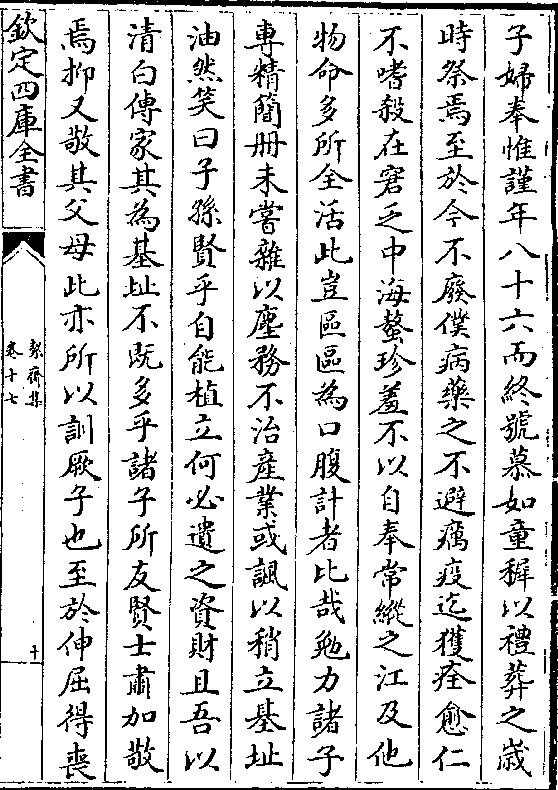 子婦奉惟謹年八十六而終號慕如童穉以禮葬之歳
時祭焉至於今不廢僕病藥之不避癘疫迄獲痊愈仁
不嗜殺在窘乏中海螯珍羞不以自奉常縱之江及他
物命多所全活此豈區區為口腹計者比哉勉力諸子
專精簡冊未嘗雜以塵務不治産業或諷以稍立基址
油然笑曰子孫賢乎自能植立何必遺之資財且吾以
清白傳家其為基址不既多乎諸子所友賢士肅加敬
焉抑又敬其父母此亦所以訓厥子也至於伸屈得喪
欽定四庫全書
絜齋集
卷十七
十